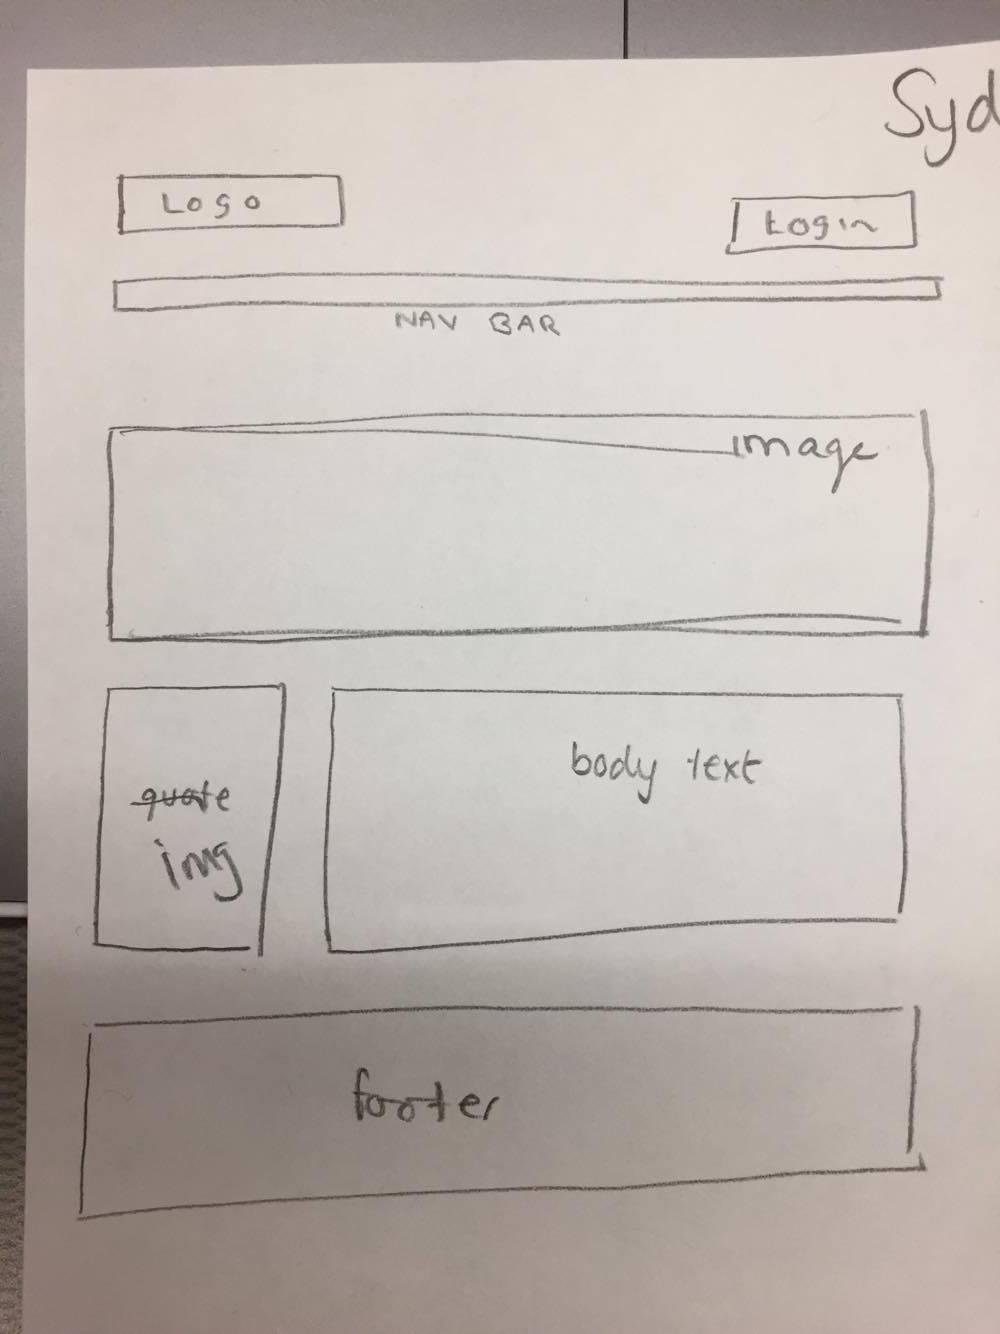 Syd
Logo
Login
NAV BAR
image
quote
img
body text
footer